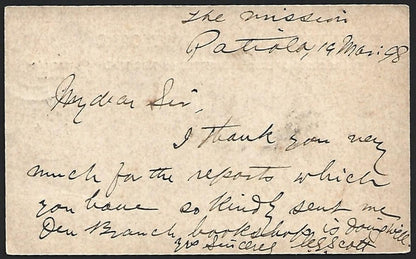 The Mission
Patiala, 19 Mar: 98
My dear Sir,
I thank you very
much for the reports which
you have so kindly sent me
Branch bookshop is doing well.
yrs Sincerely Scott